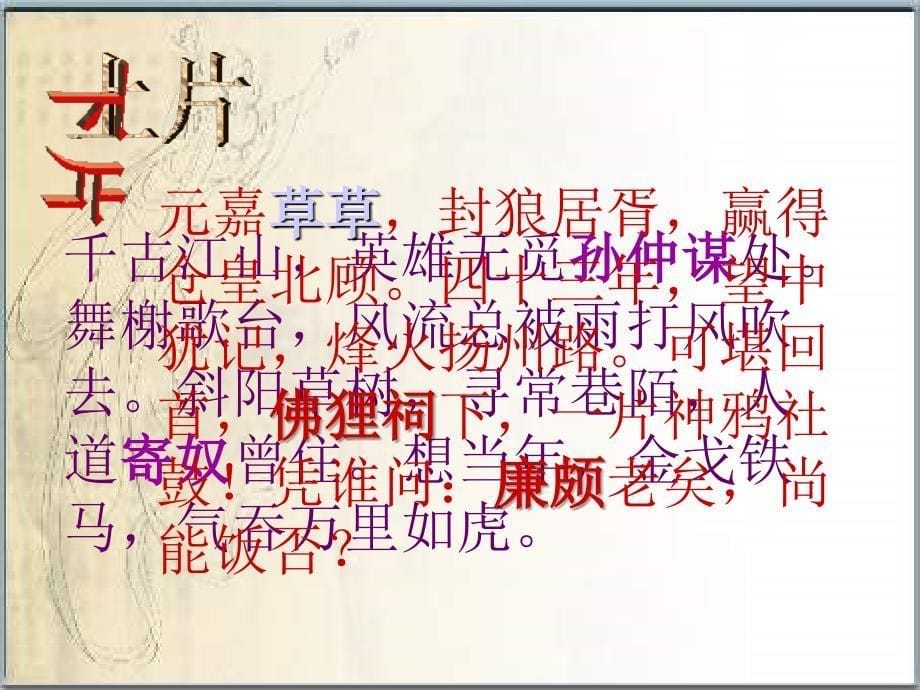 上片
千古江山，英雄无觅孙仲谋处。
舞榭歌台，风流总被雨打风吹
去。斜阳草树，寻常巷陌，人
道寄奴曾住。想当年，金戈铁
马，气吞万里如虎。
元嘉草草，封狼居胥，赢得
仓皇北顾。四十三年，望中
犹记，烽火扬州路。可堪回
首，佛狸祠下，一片神鸦社
鼓！凭谁问：廉颇老矣，尚
能饭否？